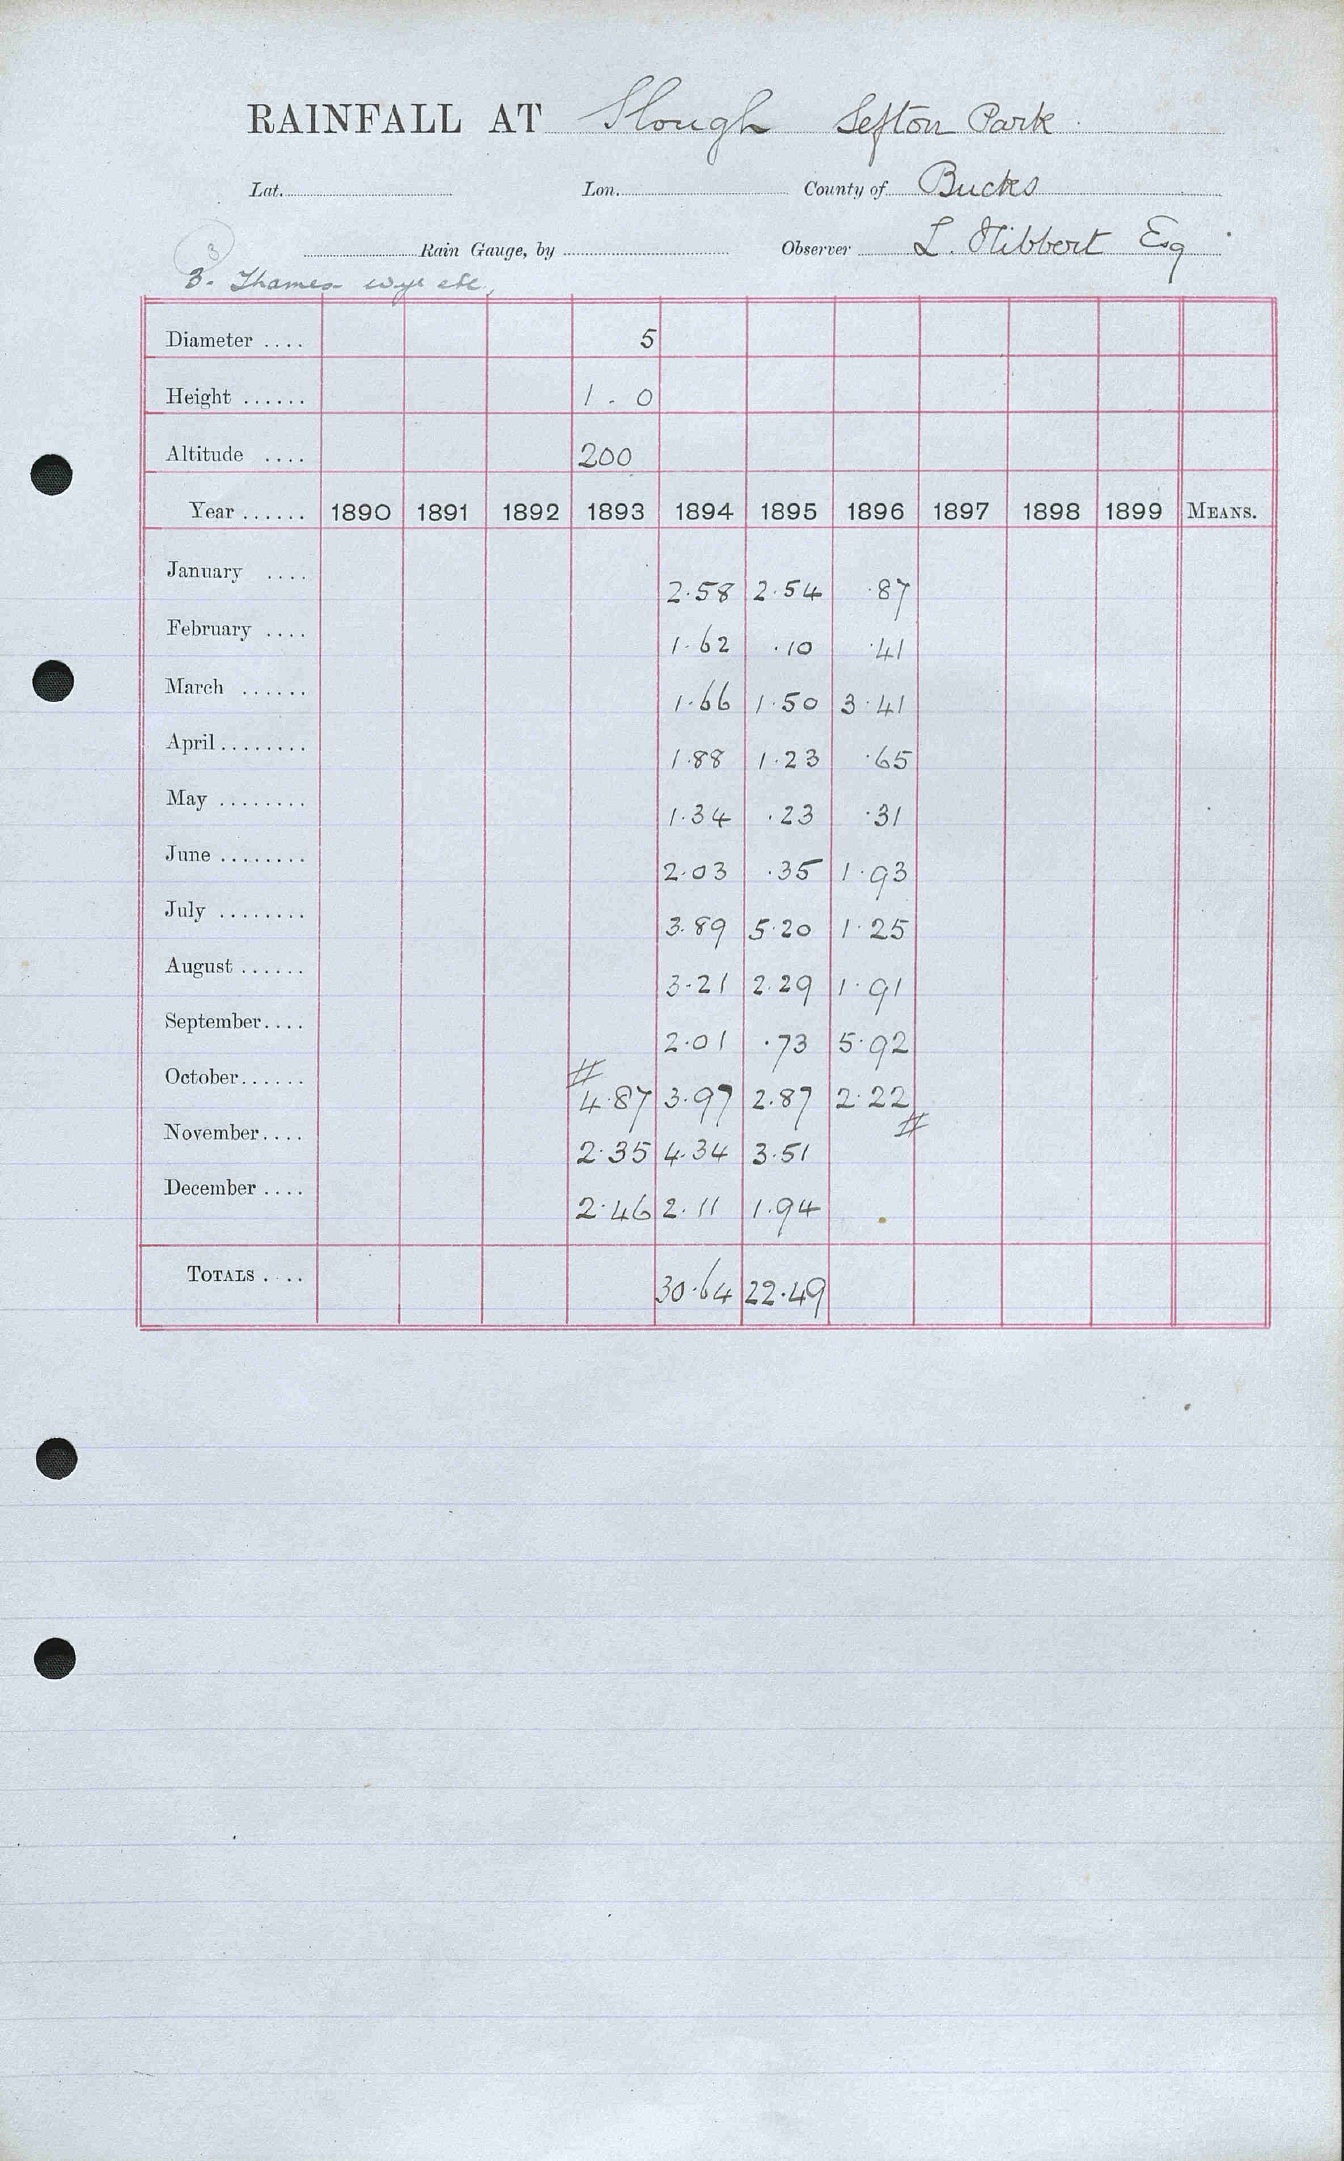 RAINFALL AT Slough Sefton Park.
Lat. Lon. County of Bucks
3 Rain Gauge, by Observer L. Hibbert Esq
3. Thames Wye etc,
Diameter .... 5
Height ...... 1 . 0
Altitude .... 200
Year ...... 1890 1891 1892 1893 1894 1895 1896 1897 1898 1899 MEANS.
January .... 2.58 2.54 .87
February .... 1.62 .10 .41
March ...... 1.66 1.50 3.41
April ........ 1.88 1.23 .65
May ........ 1.34 .23 .31
June ........ 2.03 .35 1.93
July ........ 3.89 5.20 1.25
August ...... 3.21 2.29 1.91
September.... 2.01 .73 5.92
October...... # 4.87 3.97 2.87 2.22 #
November.... 2.35 4.34 3.51
December .... 2.46 2.11 1.94
TOTALS .... 30.64 22.49